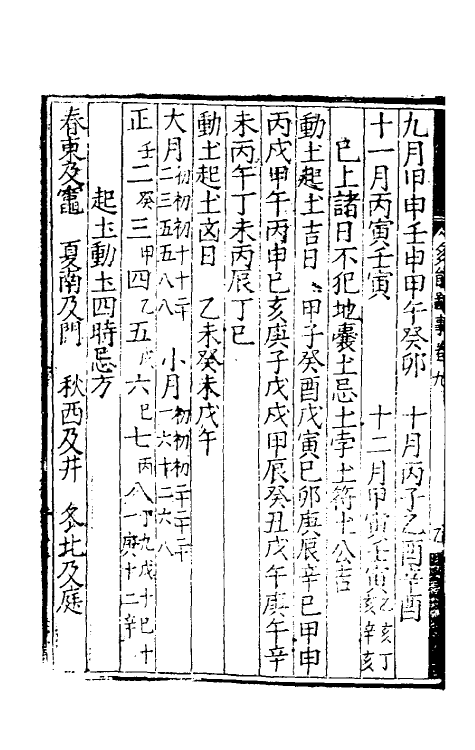 九月甲申壬申甲午癸卯　十月丙子乙酉辛酉
十一月丙寅壬寅　十二月甲寅壬寅乙亥丁亥辛亥
已上諸日不犯地囊土忌土孛土符土公吉
動土起土吉日　甲子癸酉戊寅巳卯庚辰辛巳甲申
丙戌甲午丙申巳亥庚子戊戌甲辰癸丑戊午庚午辛
未丙午丁未丙辰丁巳
動土起土凶日　乙未癸未戊午
大月初二初三初五十五十八二十八　小月初一初六初十二十二二十六二十八
正壬二癸三甲四乙五戊六巳七丙八丁九戊十巳十一庚十二辛
起土動土四時忌方
春東及竈　夏南及門　秋西及井　冬北及庭